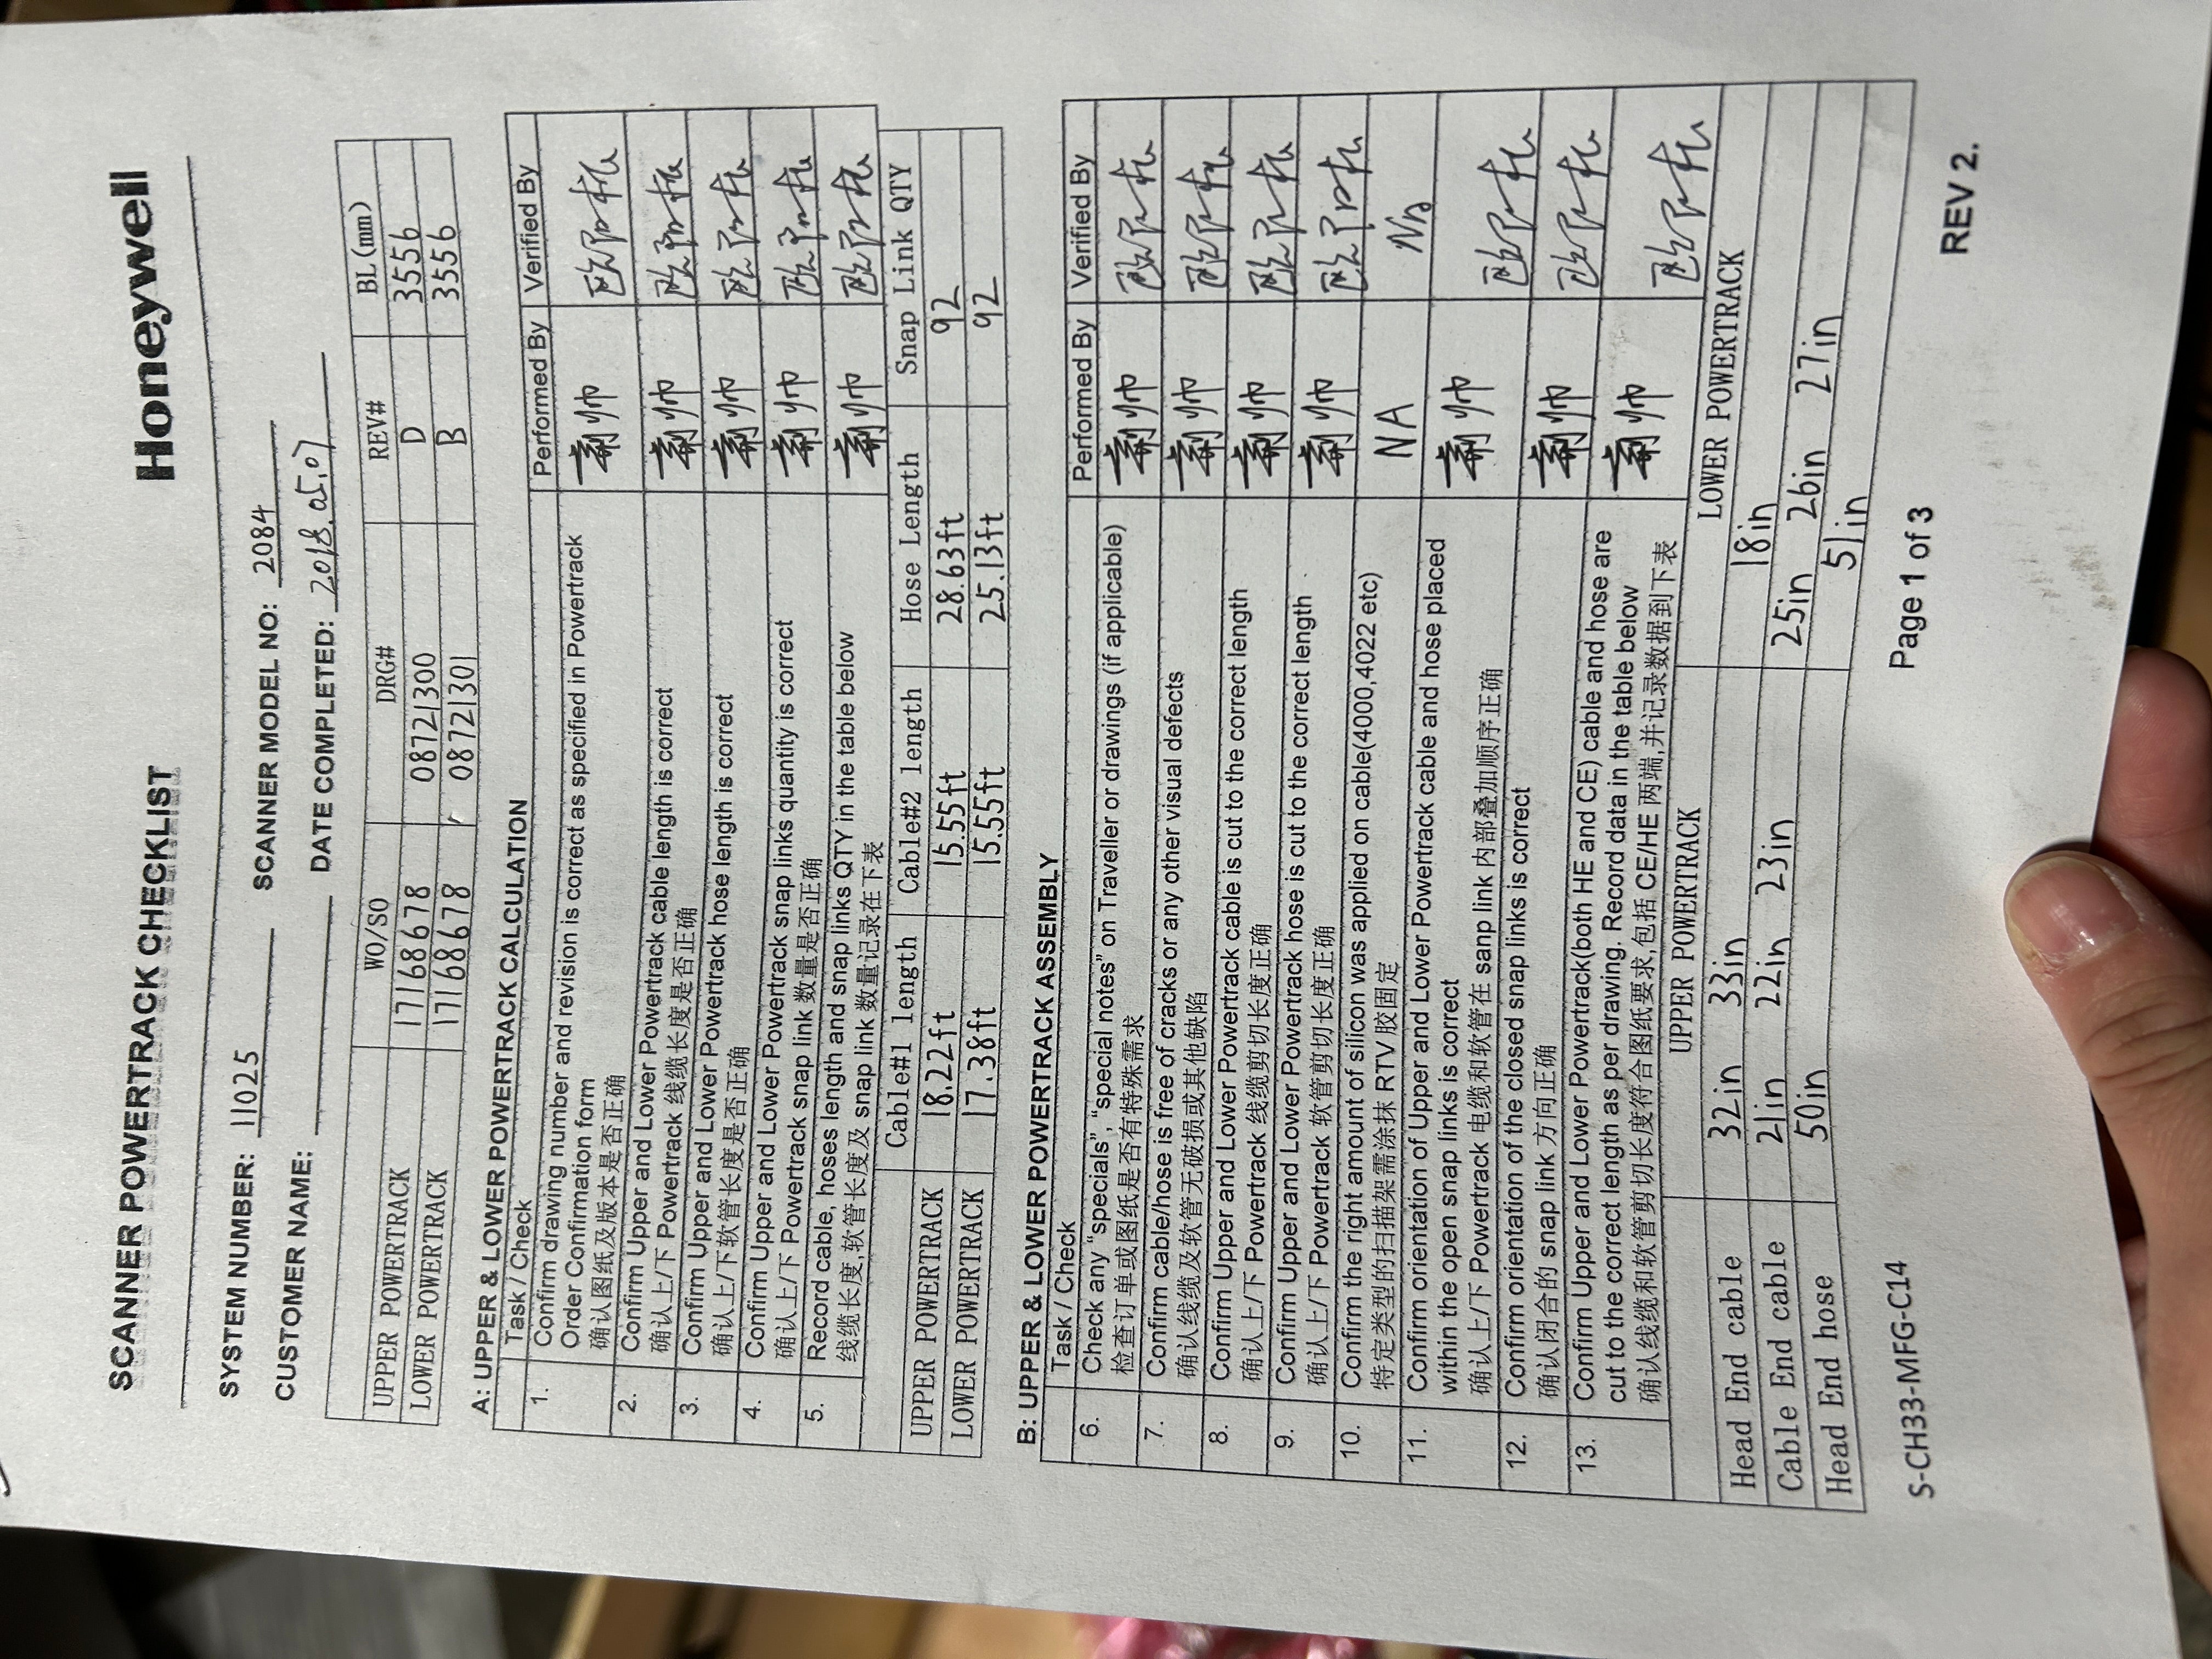 SCANNER POWERTRACK CHECKLIST Honeywell
SYSTEM NUMBER: 11025 SCANNER MODEL NO: 2084
CUSTOMER NAME: DATE COMPLETED: 2018.05.07
WO/SO DRG# REV# BL(mm)
UPPER POWERTRACK 17168678 08721300 D 3556
LOWER POWERTRACK 17168678 08721301 B 3556
A: UPPER & LOWER POWERTRACK CALCULATION
Task / Check Performed By Verified By
1. Confirm drawing number and revision is correct as specified in Powertrack
Order Confirmation form
确认图纸及版本是否正确
2. Confirm Upper and Lower Powertrack cable length is correct
确认上/下 Powertrack 线缆长度是否正确
3. Confirm Upper and Lower Powertrack hose length is correct
确认上/下软管长度是否正确
4. Confirm Upper and Lower Powertrack snap links quantity is correct
确认上/下 Powertrack snap link 数量是否正确
5. Record cable, hoses length and snap links QTY in the table below
线缆长度,软管长度及 snap link 数量记录在下表
Cable#1 length Cable#2 length Hose Length Snap Link QTY
UPPER POWERTRACK 18.22ft 15.55ft 28.63ft 92
LOWER POWERTRACK 17.38ft 15.55ft 25.13ft 92
B: UPPER & LOWER POWERTRACK ASSEMBLY
Task / Check Performed By Verified By
6. Check any “specials”, “special notes” on Traveller or drawings (if applicable)
检查订单或图纸是否有特殊需求
7. Confirm cable/hose is free of cracks or any other visual defects
确认线缆及软管无破损或其他缺陷
8. Confirm Upper and Lower Powertrack cable is cut to the correct length
确认上/下 Powertrack 线缆剪切长度正确
9. Confirm Upper and Lower Powertrack hose is cut to the correct length
确认上/下 Powertrack 软管剪切长度正确
10. Confirm the right amount of silicon was applied on cable(4000,4022 etc) NA NA
特定类型的扫描架需涂抹 RTV 胶固定
11. Confirm orientation of Upper and Lower Powertrack cable and hose placed
within the open snap links is correct
确认上/下 Powertrack 电缆和软管在 sanp link 内部叠加顺序正确
12. Confirm orientation of the closed snap links is correct
确认闭合的 snap link 方向正确
13. Confirm Upper and Lower Powertrack(both HE and CE) cable and hose are
cut to the correct length as per drawing. Record data in the table below
确认线缆和软管剪切长度符合图纸要求,包括 CE/HE 两端,并记录数据到下表
UPPER POWERTRACK LOWER POWERTRACK
Head End cable 32in 33in 18in
Cable End cable 21in 22in 23in 25in 26in 27in
Head End hose 50in 51in
S-CH33-MFG-C14 Page 1 of 3 REV 2.